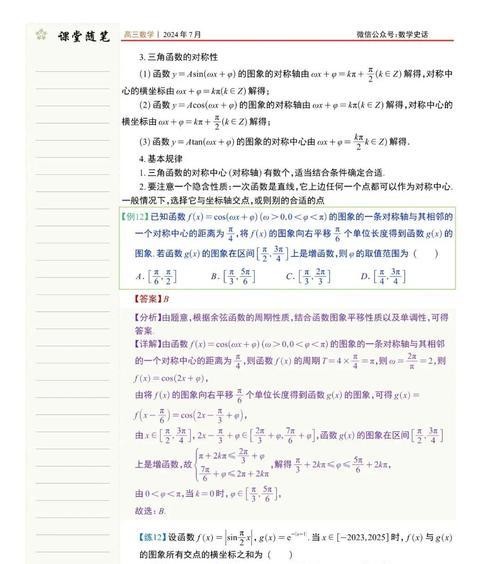 课堂随笔
高三数学 | 2024年7月
微信公众号:数学史话
3. 三角函数的对称性
(1) 函数 y=Asin(ωx+φ) 的图象的对称轴由 ωx+φ=kπ+π/2(k∈Z) 解得,对称中
心的横坐标由 ωx+φ=kπ(k∈Z) 解得;
(2) 函数 y=Acos(ωx+φ) 的图象的对称轴由 ωx+φ=kπ(k∈Z) 解得,对称中心的
横坐标由 ωx+φ=kπ+π/2(k∈Z) 解得;
(3) 函数 y=Atan(ωx+φ) 的图象的对称中心由 ωx+φ=kπ/2 k∈Z) 解得.
4. 基本规律
1. 三角函数的对称中心 (对称轴) 有数个,适当结合条件确定合适.
2. 要注意一个隐含性质:一次函数是直线,它上边任何一个点都可以作为对称中心.
一般情况下,选择它与坐标轴交点,或则别的合适的点
【例12】已知函数 f(x)=cos(ωx+φ)(ω>0,0<φ<π) 的图象的一条对称轴与其相邻的
一个对称中心的距离为 π/4,将 f(x) 的图象向右平移 π/6 个单位长度得到函数 g(x) 的
图象. 若函数 g(x) 的图象在区间 [π/2, 3π/4] 上是增函数,则 φ 的取值范围为 (   )
A. [π/6, π/2]   B. [π/3, 5π/6]   C. [π/3, 2π/3]   D. [π/4, 3π/4]
【答案】B
【分析】由题意,根据余弦函数的周期性质,结合函数图象平移性质以及单调性,可得
答案.
【详解】由函数 f(x)=cos(ωx+φ)(ω>0,0<φ<π) 的图象的一条对称轴与其相邻
的一个对称中心的距离为 π/4,则函数 f(x) 的周期 T=4×π/4=π,则 ω=2π/π=2,则
f(x)=cos(2x+φ),
由将 f(x) 的图象向右平移 π/6 个单位长度得到函数 g(x) 的图象,可得 g(x)=
f(x-π/6)=cos(2x-π/3+φ),
由 x∈[π/2, 3π/4], 2x-π/3+φ∈[2π/3+φ, 7π/6+φ],函数 g(x) 的图象在区间 [π/2, 3π/4]
上是增函数,故 {π+2kπ≤2π/3+φ, 7π/6+φ≤2π+2kπ, 解得 π/3+2kπ≤φ≤5π/6+2kπ,
由 0<φ<π,当 k=0 时,φ∈[π/3, 5π/6],
故选: B.
【练12】设函数 f(x)=|sin π/2 x|, g(x)=e^(-|x-1|). 当 x∈[-2023,2025] 时, f(x) 与 g(x)
的图象所有交点的横坐标之和为 (   )